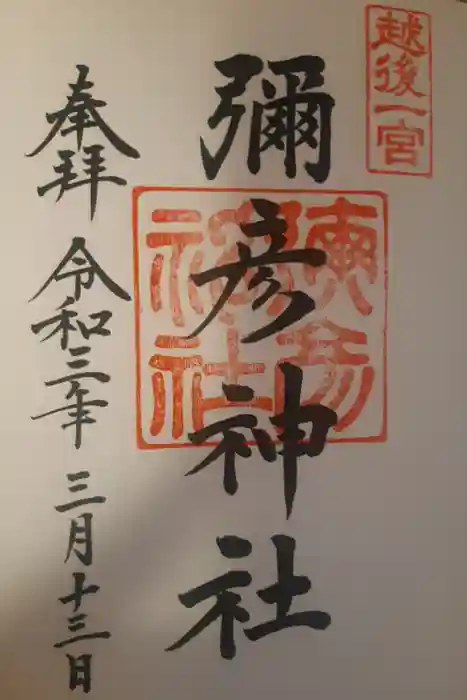 越後一宮
彌彦神社
彌彦神社
奉拝 令和三年 三月十三日